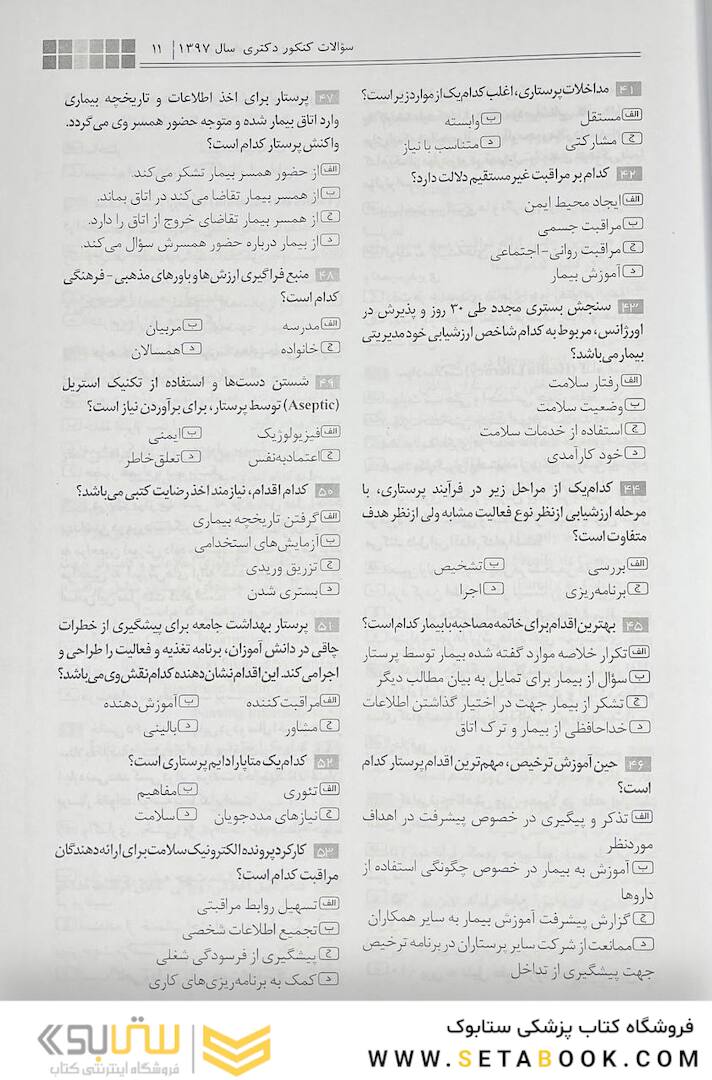 سؤالات کنکور دکتری سال ۱۳۹۷ | ۱۱
۴۱ مداخلات پرستاری، اغلب کدام‌یک از موارد زیر است؟
الف مستقل
ب وابسته
ج مشارکتی
د متناسب با نیاز
۴۲ کدام بر مراقبت غیر مستقیم دلالت دارد؟
الف ایجاد محیط ایمن
ب مراقبت جسمی
ج مراقبت روانی- اجتماعی
د آموزش بیمار
۴۳ سنجش بستری مجدد طی ۳۰ روز و پذیرش در
اورژانس، مربوط به کدام شاخص ارزشیابی خود مدیریتی
بیمار می‌باشد؟
الف رفتار سلامت
ب وضعیت سلامت
ج استفاده از خدمات سلامت
د خود کارآمدی
۴۴ کدام‌یک از مراحل زیر در فرآیند پرستاری، با
مرحله ارزشیابی ازنظر نوع فعالیت مشابه ولی ازنظر هدف
متفاوت است؟
الف بررسی
ب تشخیص
ج برنامه‌ریزی
د اجرا
۴۵ بهترین اقدام برای خاتمه مصاحبه با بیمار کدام است؟
الف تکرار خلاصه موارد گفته شده بیمار توسط پرستار
ب سؤال از بیمار برای تمایل به بیان مطالب دیگر
ج تشکر از بیمار جهت در اختیار گذاشتن اطلاعات
د خداحافظی از بیمار و ترک اتاق
۴۶ حین آموزش ترخیص، مهم‌ترین اقدام پرستار کدام
است؟
الف تذکر و پیگیری در خصوص پیشرفت در اهداف
موردنظر
ب آموزش به بیمار در خصوص چگونگی استفاده از
داروها
ج گزارش پیشرفت آموزش بیمار به سایر همکاران
د ممانعت از شرکت سایر پرستاران در برنامه ترخیص
جهت پیشگیری از تداخل
۴۷ پرستار برای اخذ اطلاعات و تاریخچه بیماری
وارد اتاق بیمار شده و متوجه حضور همسر وی می‌گردد.
واکنش پرستار کدام است؟
الف از حضور همسر بیمار تشکر می‌کند.
ب از همسر بیمار تقاضا می‌کند در اتاق بماند.
ج از همسر بیمار تقاضای خروج از اتاق را دارد.
د از بیمار درباره حضور همسرش سؤال می‌کند.
۴۸ منبع فراگیری ارزش‌ها و باورهای مذهبی - فرهنگی
کدام است؟
الف مدرسه
ب مربیان
ج خانواده
د همسالان
۴۹ شستن دست‌ها و استفاده از تکنیک استریل
(Aseptic) توسط پرستار، برای برآوردن نیاز است؟
الف فیزیولوژیک
ب ایمنی
ج اعتمادبه‌نفس
د تعلق‌خاطر
۵۰ کدام اقدام، نیازمند اخذ رضایت کتبی می‌باشد؟
الف گرفتن تاریخچه بیماری
ب آزمایش‌های استخدامی
ج تزریق وریدی
د بستری شدن
۵۱ پرستار بهداشت جامعه برای پیشگیری از خطرات
چاقی در دانش آموزان، برنامه تغذیه و فعالیت را طراحی و
اجرا می‌کند. این اقدام نشان‌دهنده کدام نقش وی می‌باشد؟
الف مراقبت‌کننده
ب آموزش‌دهنده
ج مشاور
د بالینی
۵۲ کدام یک متاپارادایم پرستاری است؟
الف تئوری
ب مفاهیم
ج نیازهای مددجویان
د سلامت
۵۳ کارکرد پرونده الکترونیک سلامت برای ارائه‌دهندگان
مراقبت کدام است؟
الف تسهیل روابط مراقبتی
ب تجمیع اطلاعات شخصی
ج پیشگیری از فرسودگی شغلی
د کمک به برنامه‌ریزی‌های کاری
فروشگاه کتاب پزشکی ستابوک
WWW.SETABOOK.COM
ستابوک
فروشگاه اینترنتی کتاب